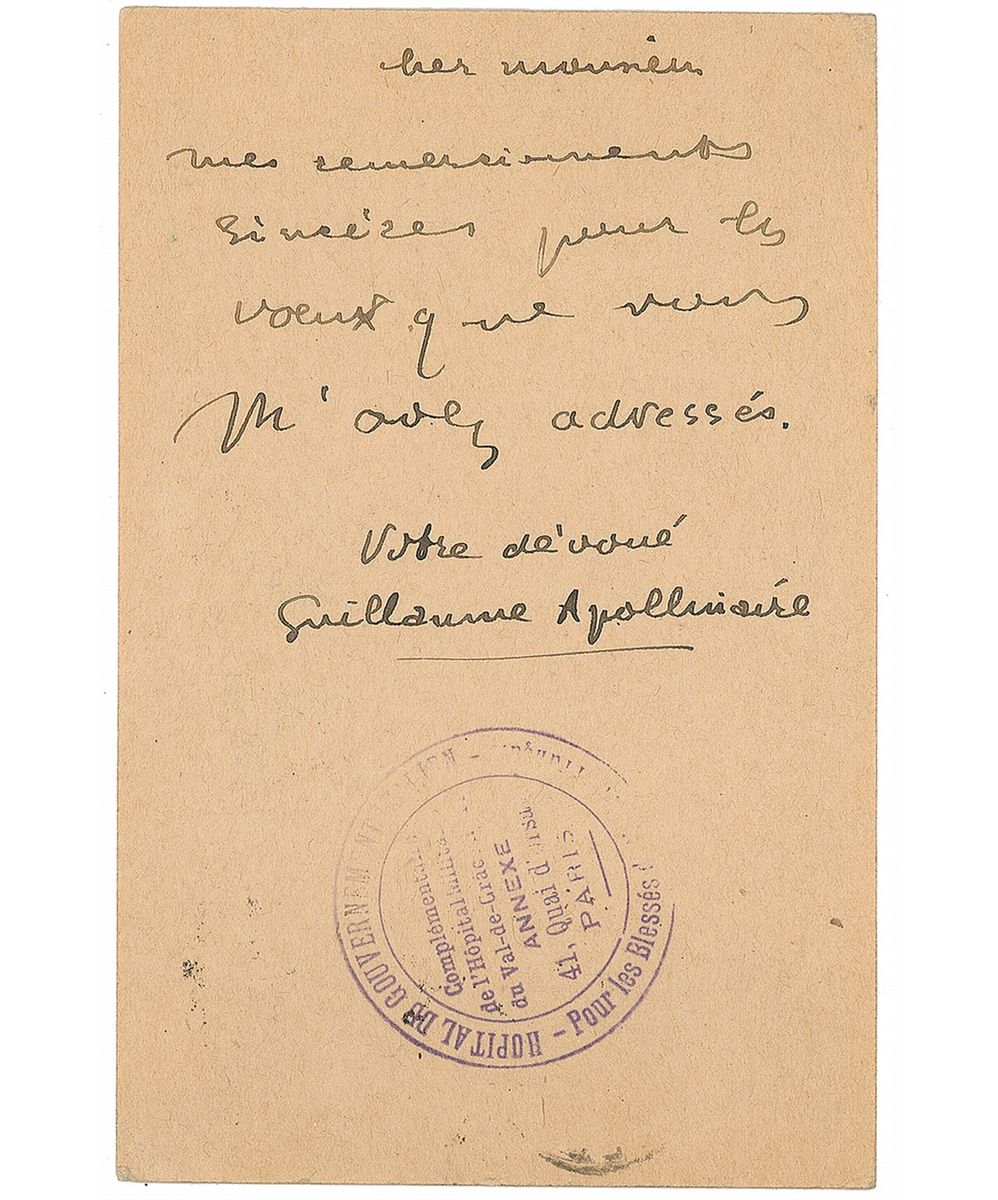 cher monsieur
mes remerciements
sincères pour les
voeux que vous
m'avez adressés.
Votre dévoué
Guillaume Apollinaire
HOPITAL DU GOUVERNEMENT
- Pour les Blessés
de l'Hôpital
du Val-de-Grâce
ANNEXE
41, Quai d'
PARIS